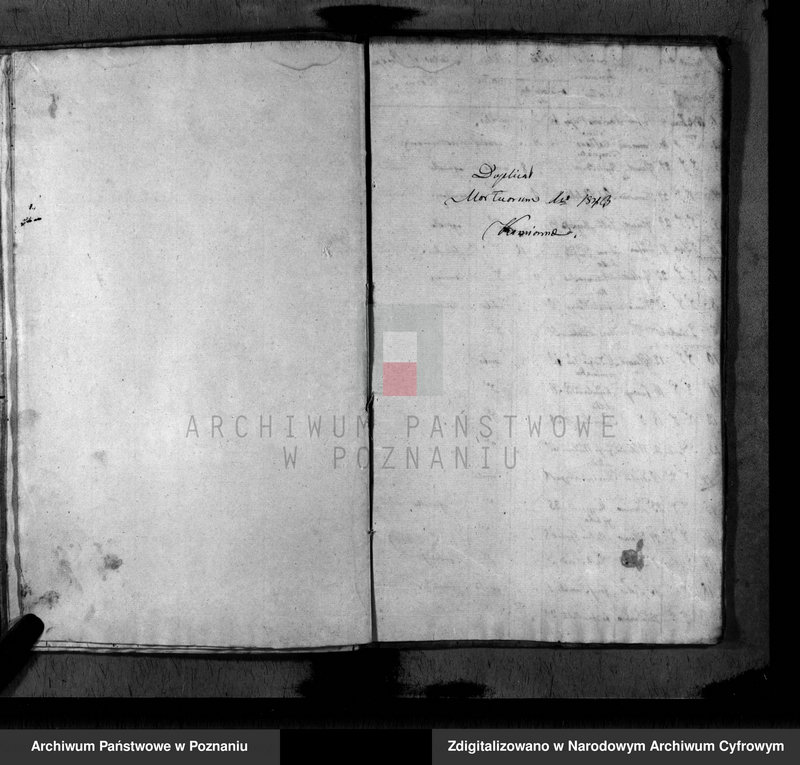 Duplicat
Mortuorum de 1843
Kamionna.
ARCHIWUM PAŃSTWOWE
W POZNANIU
Archiwum Państwowe w Poznaniu
Zdigitalizowano w Narodowym Archiwum Cyfrowym